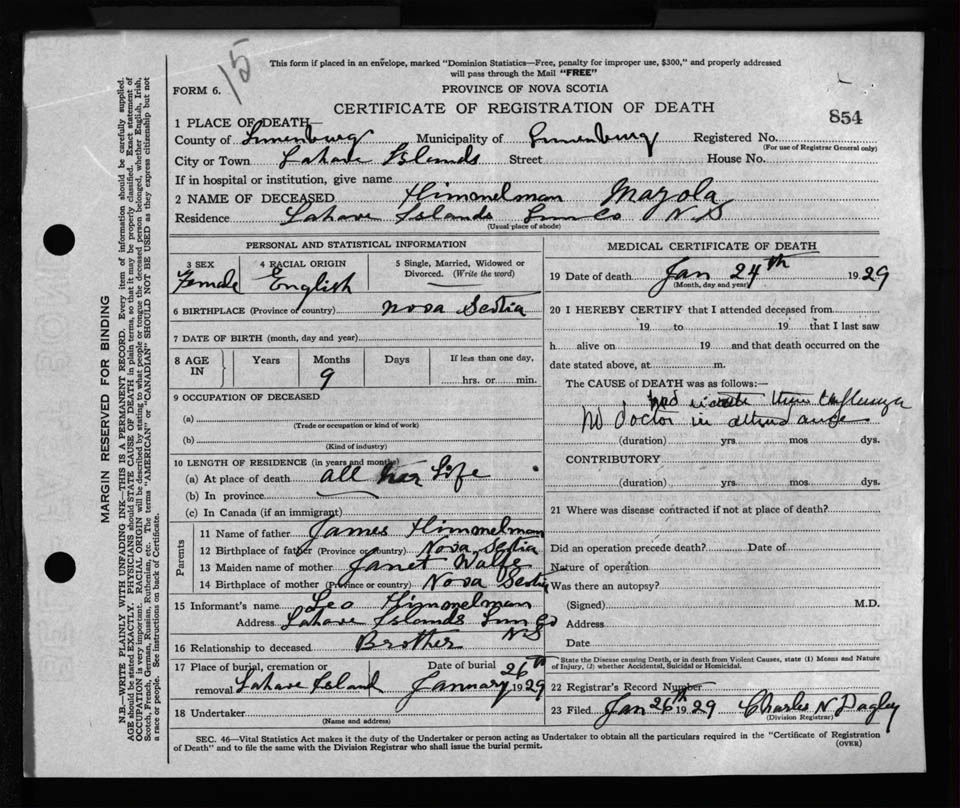 15
This form if placed in an envelope, marked "Dominion Statistics—Free, penalty for improper use, $300," and properly addressed
will pass through the Mail "FREE"
FORM 6.
PROVINCE OF NOVA SCOTIA
CERTIFICATE OF REGISTRATION OF DEATH
854
1 PLACE OF DEATH—
County of Lunenburg Municipality of Lunenburg Registered No.
(For use of Registrar General only)
City or Town Lahave Islands Street House No.
If in hospital or institution, give name
2 NAME OF DECEASED Himmelman Mayola
Residence Lahave Islands Lun Co N.S
(Usual place of abode)
PERSONAL AND STATISTICAL INFORMATION
3 SEX 4 RACIAL ORIGIN 5 Single, Married, Widowed or
Divorced. (Write the word)
Female English
6 BIRTHPLACE (Province or country) Nova Scotia
7 DATE OF BIRTH (month, day and year)
8 AGE IN Years Months Days If less than one day,
9 hrs. or min.
9 OCCUPATION OF DECEASED
(a)
(Trade or occupation or kind of work)
(b)
(Kind of industry)
10 LENGTH OF RESIDENCE (in years and months)
(a) At place of death all her Life
(b) In province
(c) In Canada (if an immigrant)
Parents
11 Name of father James Himmelman
12 Birthplace of father (Province or country) Nova Scotia
13 Maiden name of mother Janet Wolfe
14 Birthplace of mother (Province or country) Nova Scotia
15 Informant's name Leo Himmelman
Address Lahave Islands Lun Co
N.S
16 Relationship to deceased Brother
17 Place of burial, cremation or Date of burial
removal Lahave Island January 26th 1929
18 Undertaker
(Name and address)
MEDICAL CERTIFICATE OF DEATH
19 Date of death Jan 24th 1929
(Month, day and year)
20 I HEREBY CERTIFY that I attended deceased from
19 to 19 that I last saw
h alive on 19 and that death occurred on the
date stated above, at m.
The CAUSE of DEATH was as follows:—
had Influenza
No Doctor in attendance
(duration) yrs. mos. dys.
CONTRIBUTORY
(duration) yrs. mos. dys.
21 Where was disease contracted if not at place of death?
Did an operation precede death? Date of
Nature of operation
Was there an autopsy?
(Signed) M.D.
Address
Date
State the Disease causing Death, or in death from Violent Causes, state (1) Means and Nature
of Injury, (2) whether Accidental, Suicidal or Homicidal.
22 Registrar's Record Number
23 Filed Jan 26th 1929 Charles N Pagley
(Division Registrar)
SEC. 46—Vital Statistics Act makes it the duty of the Undertaker or person acting as Undertaker to obtain all the particulars required in the "Certificate of Registration
of Death" and to file the same with the Division Registrar who shall issue the burial permit.
(OVER)
MARGIN RESERVED FOR BINDING
N.B.—WRITE PLAINLY WITH UNFADING INK—THIS IS A PERMANENT RECORD. Every item of information should be carefully supplied.
AGE should be stated EXACTLY. PHYSICIANS should STATE CAUSE OF DEATH in plain terms, so that it may be properly classified. Exact statement of
OCCUPATION is very important. RACIAL ORIGIN will be described by stating to what people or tongue the deceased person belonged, whether English, Irish,
Scotch, French, German, Russian, Ruthenian, etc. The terms "AMERICAN" or "CANADIAN" SHOULD NOT BE USED as they express citizenship but not
a race or people. See instructions on back of Certificate.